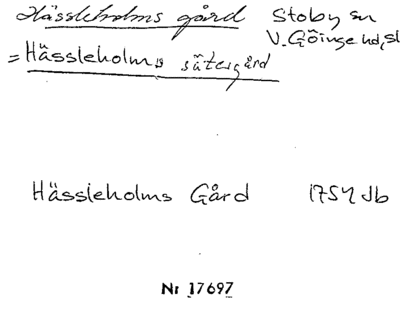 Hässleholms gård Stoby sn
V. Göinge hd, sk
= Hässleholms sätesgård
Hässleholms Gård 1754 Jb
Nr 17697